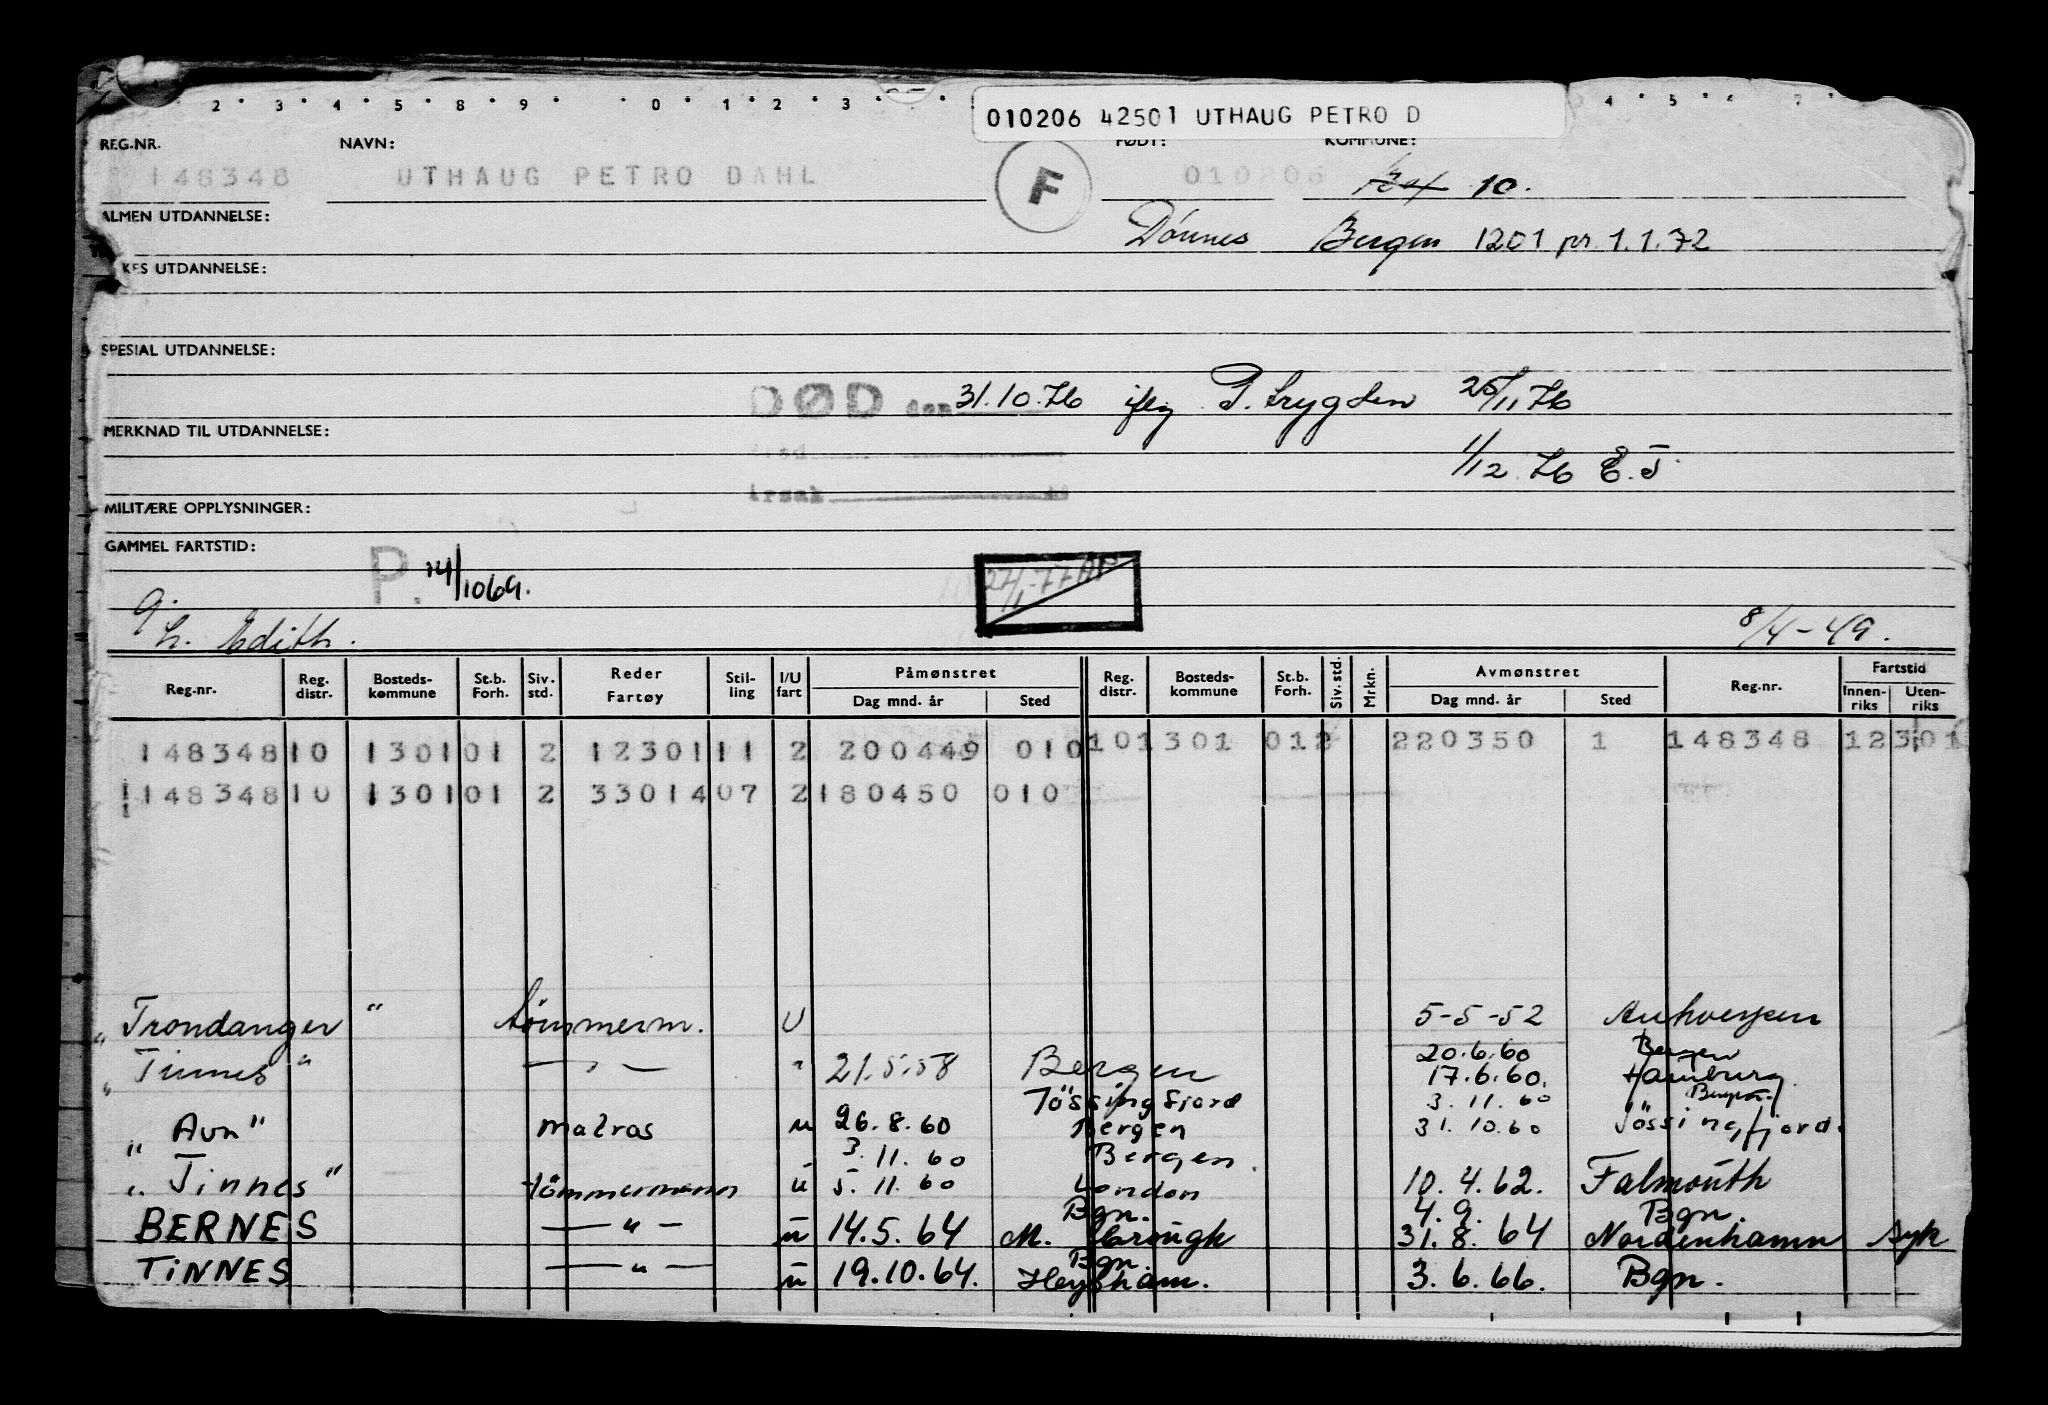 2 · 3 · 4 · 5 · 8 · 9 · · 0 · 1 · 2 · 3 · 4 · 5
010206 42501 UTHAUG PETRO D
REG.NR. NAVN: FØDT: KOMMUNE:
148348 UTHAUG PETRO DAHL F 010206 10.
ALMEN UTDANNELSE:
Dønnes Bergen 1201 pr. 1.1.72
UTDANNELSE:
SPESIAL UTDANNELSE:
DØD den 31.10.76 iflg P. trygden 25/11 76
MERKNAD TIL UTDANNELSE:
1/12 76 E.J.
Årsak
MILITÆRE OPPLYSNINGER:
GAMMEL FARTSTID:
P. 14/1069. 27/1-77
g. h. Edith. 8/4-49.
Reg.-nr. Reg. distr. Bosteds-kommune St.b. Forh. Siv. std. Reder Fartøy Stil-ling I/U fart Påmønstret Dag mnd. år Sted Reg. distr. Bosteds-kommune St.b. Forh. Siv. std. Mrkn. Avmønstret Dag mnd. år Sted Reg.nr. Fartstid Innen-riks Uten-riks
148348 10 1301 01 2 12301 11 2 200449 010 10 1301 01 2 220350 1 148348 12301
148348 10 1301 01 2 33014 07 2 180450 010
"Trondanger" tömmerm. U 5-5-52 Antwerpen
"Tinnes" — " — " 21.5.58 Bergen 20.6.60 Bergen
17.6.60. Hamburg.
Jössingfjord 3.11.60 Bergen
"Avn" matros u 26.8.60 Bergen 31.10.60 Jössingfjord.
3.11.60 Bergen.
"Tinnes" tömmermann u 5.11.60 London 10.4.62. Falmouth
Bgn. 4.9. Bgn.
BERNES — " — u 14.5.64 M. brough 31.8.64 Nordenhamn syk
Bgn.
TINNES — " — u 19.10.64. Heysham. 3.6.66. Bgn.